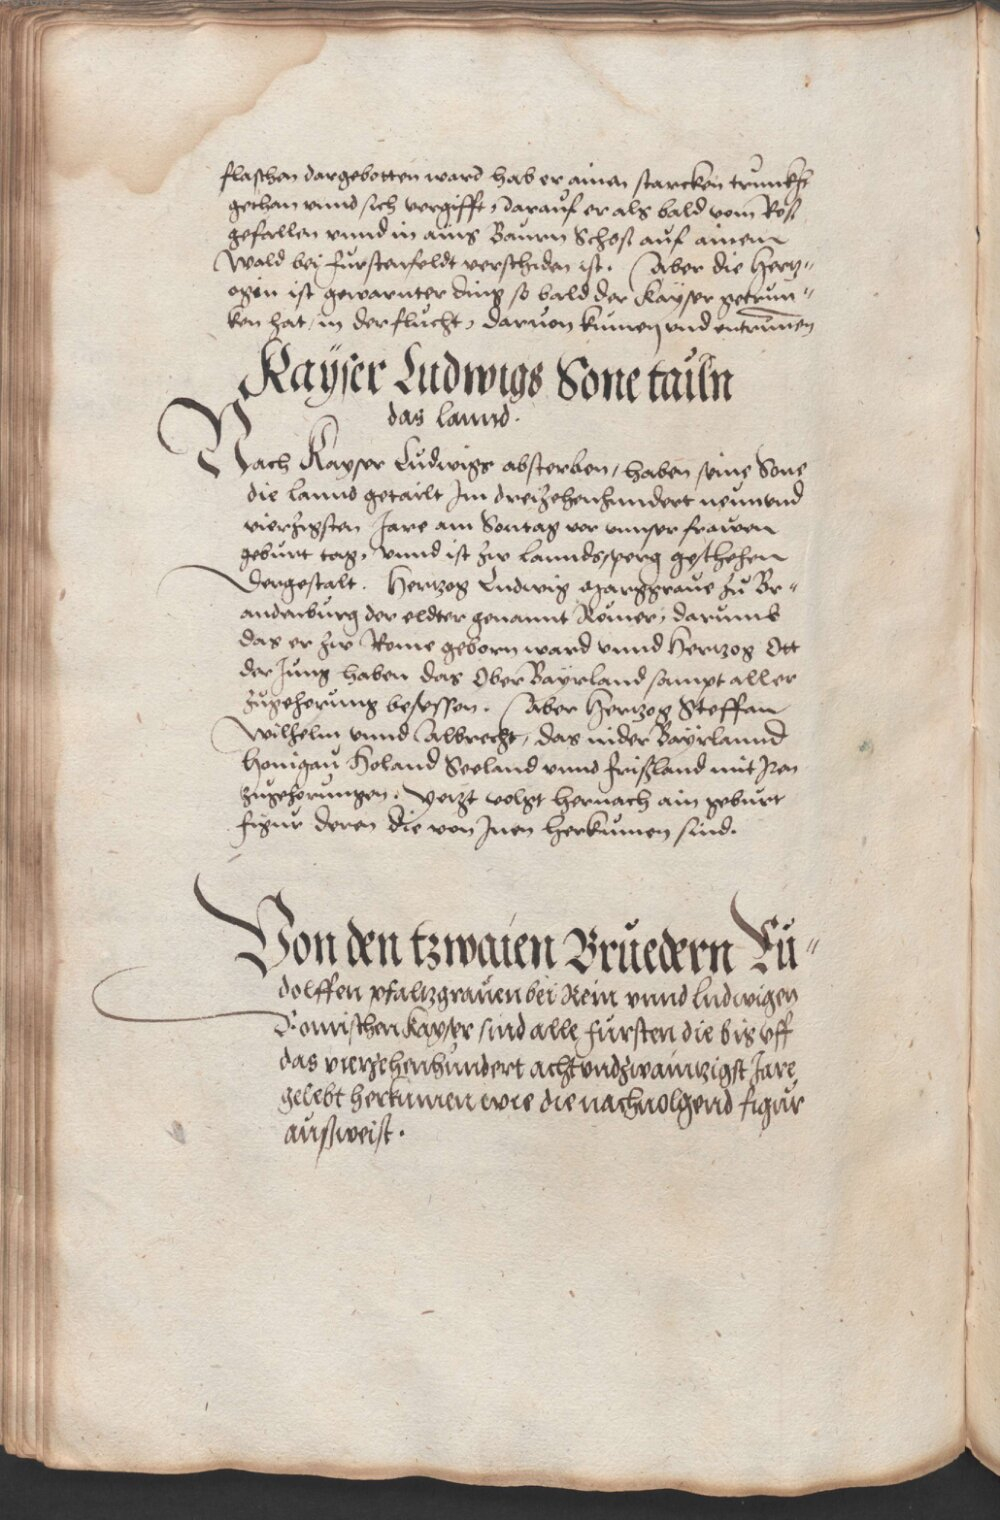 flaschen dargebotten ward hab er ainen starcken trunckh
gethan vnnd sich vergifft, darauf er als bald vom Roß
gefallen vnnd in ains Baurn Schoß auf ainem
Wald bei furstenfeldt verschiden ist. Aber die Hertz"
ogin ist gewarnter ding so bald der Kayser getrun"
ken hat, in der flucht, daruon kumen vnd entrunnen
Kayser Ludwigs Sone tailn
das lannd.
Nach Kayser Ludwigs absterben, haben seine Sone
die lannd getailt Im dreizehenhundert neunvnd
vierzigsten Jare am Sontag vor vnnser frawen
geburt tag, vnnd ist zw lanndsperg geschehen
dergestalt. Hertzog Ludwig Marggraue zu Br"
andenburg der eldter genannt Römer, darumb
das er zw Rome geborn ward vnnd Hertzog Ott
der Jung haben das Ober Bayrland sampt aller
zugehorung besessen. Aber Hertzog Steffan
Wilhelm vnnd Albrecht, das nider Bayrlannd
Henigau Holand Seeland vnnd frißland mit Iren
zugehorungen. Yetzt volgt hernach ain geburt
figur deren die von Inen herkumen sind.
Von den tzwaien Bruedern Lu"
dolffen pfaltzgrauen bei Rein vnnd ludwigen
Romischen Kayser sind alle fursten die bis vff
das vierzehenhundert acht vnd zwaintzigst Jare
gelebt herkumen wie die nachuolgend figur
außweist.